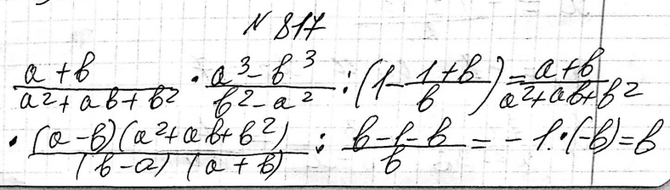 N 817
(a+b)/(a²+ab+b²) · (a³-b³)/(b²-a²) : (1 - (1+b)/b) = (a+b)/(a²+ab+b²)
· ((a-b)(a²+ab+b²))/((b-a)(a+b)) : (b-1-b)/b = -1·(-b)=b